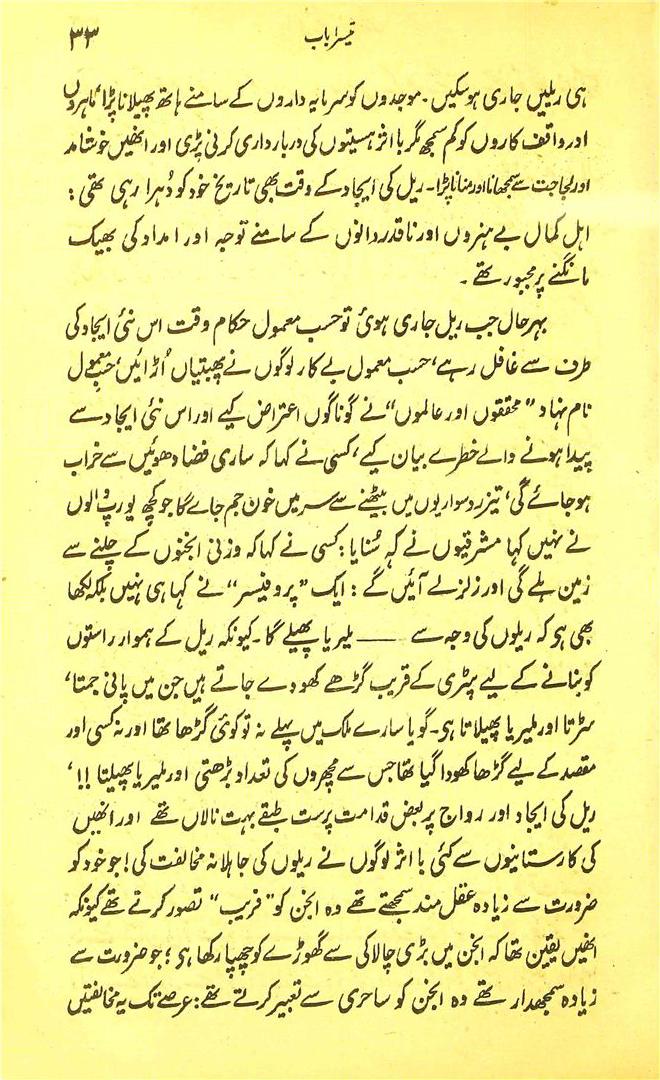 تیسرا باب ۳۳
ہی ریلیں جاری ہوسکیں۔ موجدوں کو سرمایہ داروں کے سامنے ہاتھ پھیلانا پڑا، ماہروں
اور واقف کاروں کو کم سمجھ مگر با اثر ہستیوں کی دربارداری کرنی پڑی اور انھیں خوشامد
اور لجاجت سے سمجھانا اور منانا پڑا۔ ریل کی ایجاد کے وقت بھی تاریخ خود کو دُہرا رہی تھی:
اہل کمال بے ہنروں اور ناقدردانوں کے سامنے توجہ اور امداد کی بھیک
مانگنے پر مجبور تھے۔
بہرحال جب ریل جاری ہوئ تو حسب معمول حکام وقت اس نئ ایجاد کی
طرف سے غافل رہے، حسب معمول بے کار لوگوں نے پھبتیاں اُڑائیں، حسب معمول
نام نہاد ”محققوں اور عالموں“ نے گوناگوں اعتراض کیے اور اس نئ ایجاد سے
پیدا ہونے والے خطرے بیان کیے، کسی نے کہا کہ ساری فضا دھوئیں سے خراب
ہو جائے گی، تیز رو سواریوں میں بیٹھنے سے سر میں خون جم جاے گا جو کچھ یورپ والوں
نے نہیں کہا مشرقیوں نے کہ سُنایا: کسی نے کہا کہ وزنی انجنوں کے چلنے سے
زمین ہلے گی اور زلزلے آئیں گے: ایک ”پروفیسر“ نے کہا ہی نہیں بلکہ لکھا
بھی ہو کہ ریلوں کی وجہ سے —— ملیریا پھیلے گا۔ کیونکہ ریل کے ہموار راستوں
کو بنانے کے لیے پٹری کے قریب گڑھے کھودے جاتے ہیں جن میں پانی جمتا،
سڑتا اور ملیریا پھیلاتا ہو۔ گویا سارے ملک میں پہلے نہ تو کوئ گڑھا تھا اور نہ کسی اور
مقصد کے لیے گڑھا کھودا گیا تھا جس سے مچھروں کی تعداد بڑھتی اور ملیریا پھیلتا !!،
ریل کی ایجاد اور رواج پر بعض قدامت پرست طبقے بہت نالاں تھے اور انھیں
کی کارستانیوں سے کئی با اثر لوگوں نے ریلوں کی جاہلانہ مخالفت کی! جو خود کو
ضرورت سے زیادہ عقل مند سمجھتے تھے وہ انجن کو ”فریب“ تصور کرتے تھے کیونکہ
انھیں یقین تھا کہ انجن میں بڑی چالاکی سے گھوڑے کو چھپا رکھا ہو؛ جو ضرورت سے
زیادہ سمجھدار تھے وہ انجن کو ساحری سے تعبیر کرتے تھے: عرصے تک یہ مخالفتیں